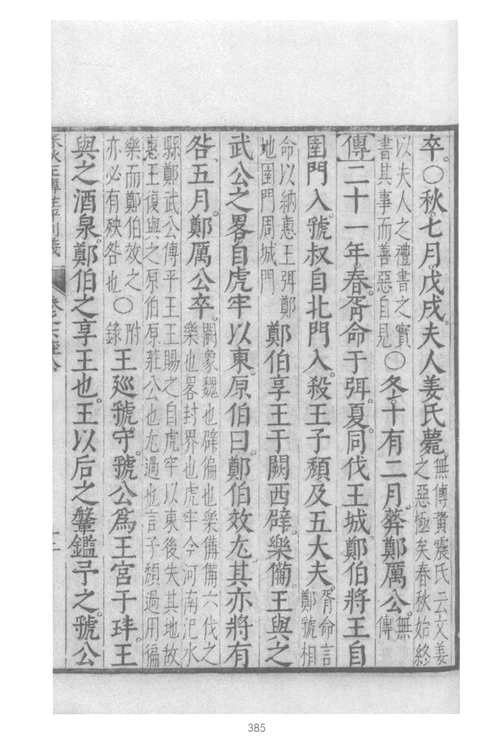 卒○秋七月戊戌夫人姜氏薨
無傳黃震氏云文姜
之惡極矣春秋始終
以夫人之禮書之實
書其事而善惡自見
○冬十有二月葬鄭厲公
無
傳
傳二十一年春胥命于弭夏同伐王城鄭伯將王自
圉門入虢叔自北門入殺王子頽及五大夫
胥命言
鄭虢相
命以納惠王弭鄭
地圉門周城門
鄭伯享王于闕西辟樂僃王與之
武公之畧自虎牢以東原伯曰鄭伯效尤其亦將有
咎五月鄭厲公卒
闕象魏也辟偏也樂備備六代之
樂也畧封界也虎牢今河南汜水
縣鄭武公傅平王王賜之自虎牢以東後失其地故
惠王復與之原伯原莊公也尤過也言子頽過用徧
樂而鄭伯效之
亦必有殃咎也
○
附
錄
王廵虢守虢公爲王宮于玤王
與之酒泉鄭伯之享王也王以后之鞶鑑予之虢公
385